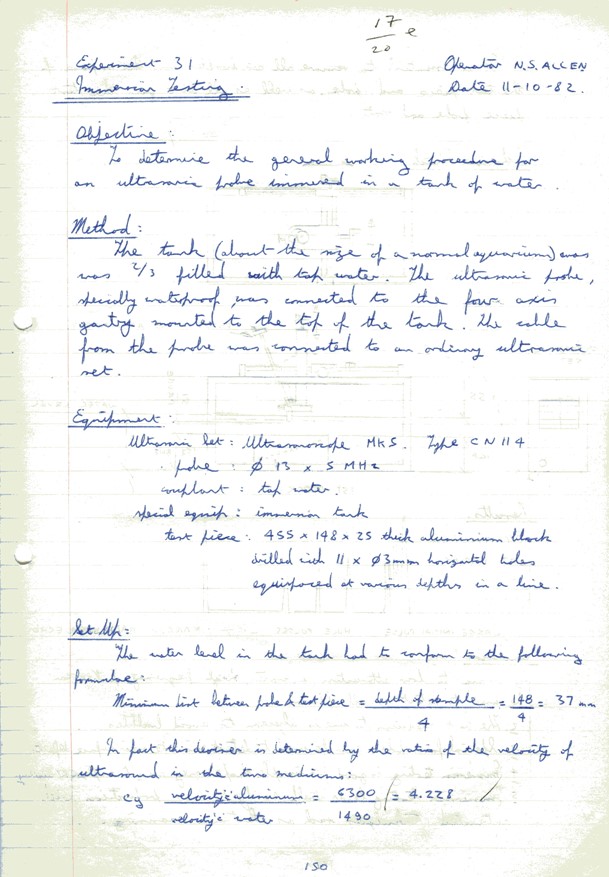 17 e
20
Experiment 31 Operator N.S. ALLEN
Immersion Testing. Date 11-10-82.
Objective:
To determine the general working procedure for
an ultrasonic probe immersed in a tank of water.
Method:
The tank (about the size of a normal aquarium) was
was 2/3 filled with tap water. The ultrasonic probe,
specially waterproof was connected to the four axis
gantry mounted to the top of the tank. The cable
from the probe was connected to an ordinary ultrasonic
set.
Equipment:
Ultrasonic Set: Ultrasonoscope MK5. Type CN 114
probe: ∅ 13 x 5 MHz
couplant: tap water.
special equip: immersion tank
test piece: 455 x 148 x 25 thick aluminium block
drilled with 11 x ∅3mm horizontal holes
equispaced at various depths in a line.
Set Up:
The water level in the tank had to conform to the following
formulae:
Minimum dist between probe & test piece = depth of sample / 4 = 148 / 4 = 37 mm
In fact this is determined by the ratio of the velocity of
ultrasound in the two mediums:
eg velocity: aluminum / velocity: water = 6300 / 1490 = 4.228
150